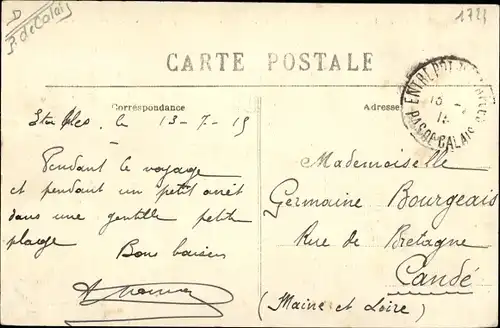 P. de Calais
1721
CARTE POSTALE
Correspondance
Adresse
PAS DE CALAIS
13
le 13-7-15
Pendant le voyage
et pendant un petit arrêt
dans une gentille petite
plage
Bons baisers
Mademoiselle
Germaine Bourgeais
Rue de Bretagne
Candé
(Maine et Loire)